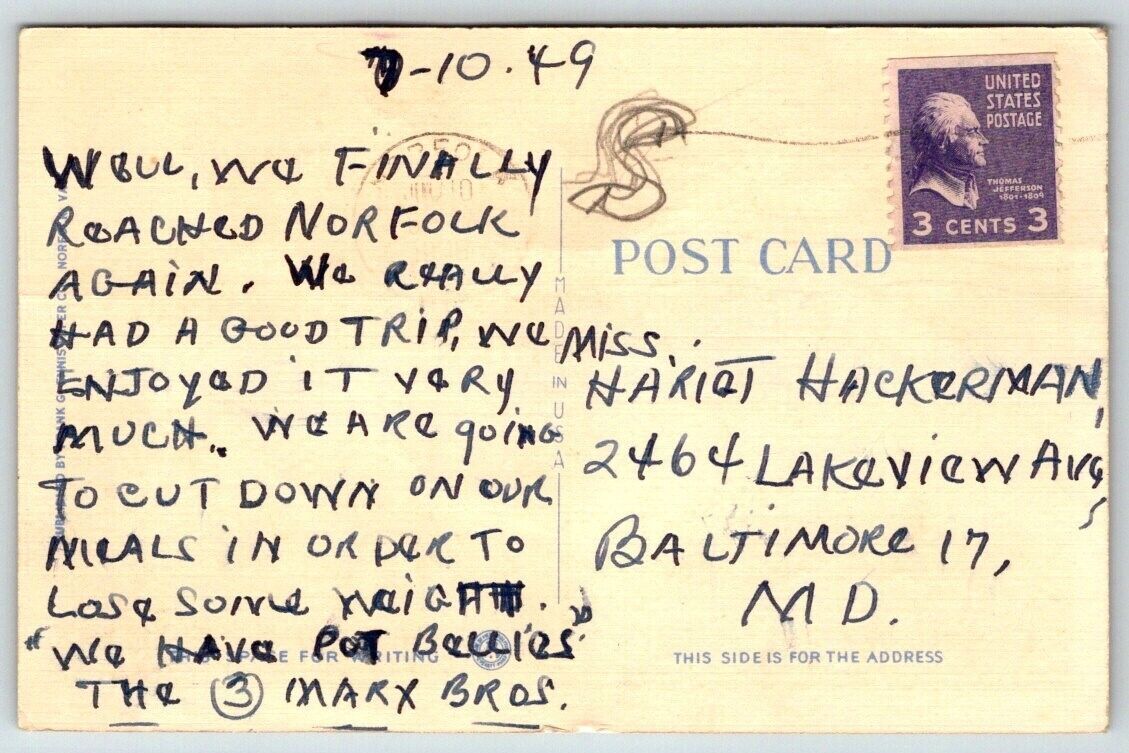 -10.49
WELL, WE FINALLY
REACHED NORFOLK
AGAIN. WE REALLY
HAD A GOOD TRIP, WE
ENJOYED IT VERY
MUCH.. WE ARE gOiNG
TO CUT DOWN ON OUR
MEALS IN ORDER TO
LOSE SOME WEIGHT.
"WE HAVE POT BELLIES"
THE 3 MARX BROS.
UNITED
STATES
POSTAGE
THOMAS
JEFFERSON
1801-1809
3 CENTS 3
POST CARD
MADE IN USA
MISS.
HARIET HACKERMAN,
2464 LAKEVIEW AVE,
BALTIMORE 17,
MD.
SPACE FOR WRITING
THIS SIDE IS FOR THE ADDRESS